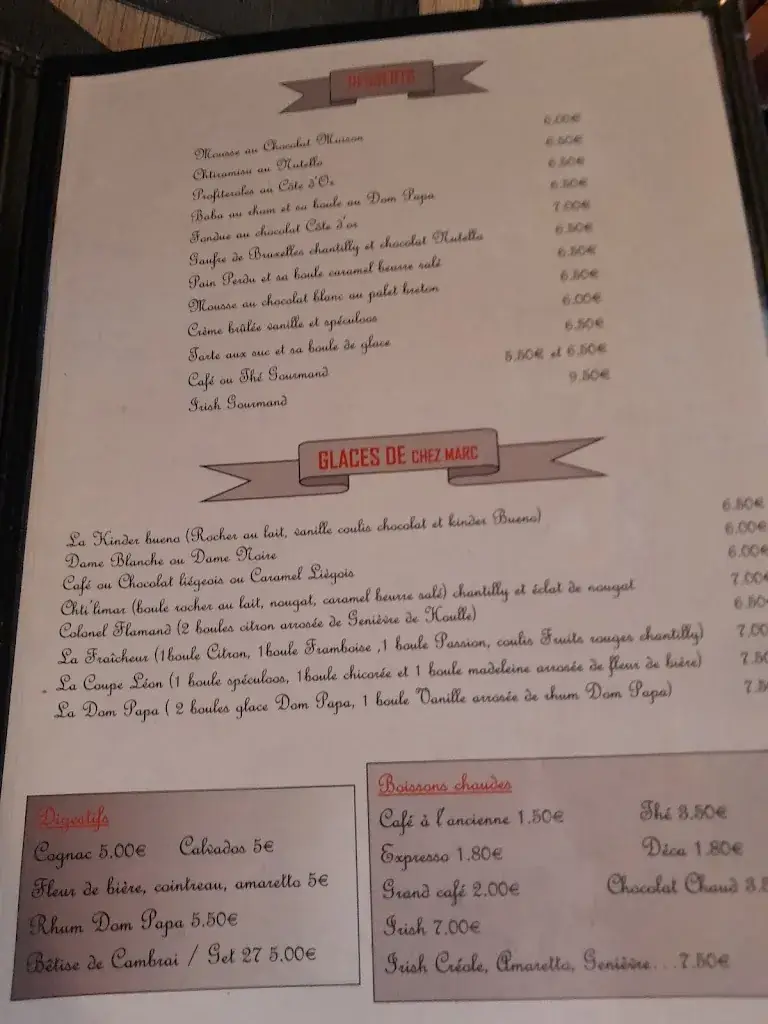 DESSERTS
Mousse au Chocolat Maison 6.00€
Chtiramisu au Nutella 6.50€
Profiteroles au Côte d'Or 6.50€
Baba au rhum et sa boule au Dom Papa 6.50€
Fondue au chocolat Côte d'or 7.00€
Gaufre de Bruxelles chantilly et chocolat Nutella 6.50€
Pain Perdu et sa boule caramel beurre salé 6.50€
Mousse au chocolat blanc au palet breton 6.50€
Crème brûlée vanille et spéculoos 6.00€
Tarte aux suc et sa boule de glace 6.50€
Café ou Thé Gourmand 5.50€ et 6.50€
Irish Gourmand 9.50€
GLACES DE CHEZ MARC
La Kinder bueno (Rocher au lait, vanille coulis chocolat et kinder Bueno) 6.50€
Dame Blanche ou Dame Noire 6.00€
Café ou Chocolat liégeois ou Caramel Liégois 6.00€
Chti'limar (boule rocher au lait, nougat, caramel beurre salé) chantilly et éclat de nougat 7.00€
Colonel Flamand (2 boules citron arrosée de Genièvre de Houlle) 6.50
La Fraîcheur (1boule Citron, 1boule Framboise ,1 boule Passion, coulis Fruits rouges chantilly) 7.00
La Coupe Léon (1 boule spéculoos, 1boule chicorée et 1 boule madeleine arrosée de fleur de bière) 7.50
La Dom Papa ( 2 boules glace Dom Papa, 1 boule Vanille arrosée de rhum Dom Papa) 7.5
Digestifs
Cognac 5.00€ Calvados 5€
Fleur de bière, cointreau, amaretto 5€
Rhum Dom Papa 5.50€
Bêtise de Cambrai / Get 27 5.00€
Boissons chaudes
Café à l'ancienne 1.50€ Thé 3.50€
Expresso 1.80€ Déca 1.80€
Grand café 2.00€ Chocolat Chaud 3.5
Irish 7.00€
Irish Créole, Amaretto, Genièvre...7.50€